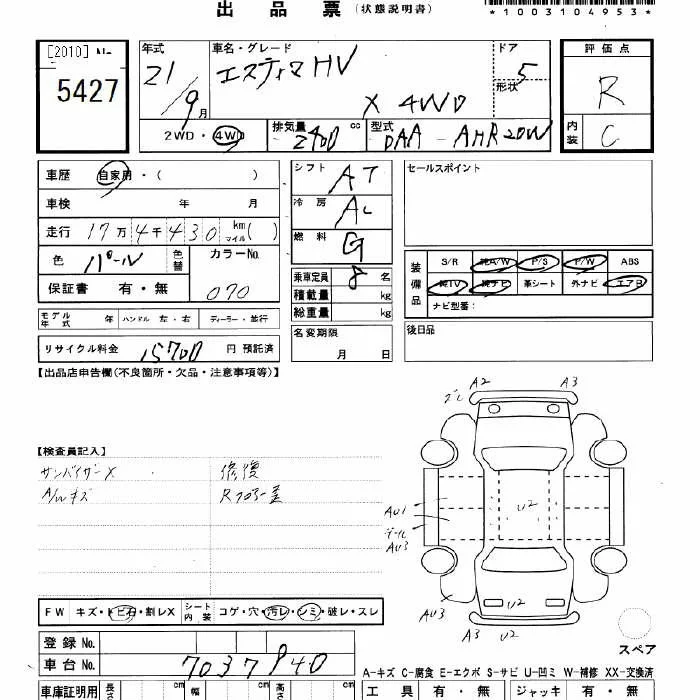 出品票 (状態説明書)
*1003104953*
[2010]
5427
年式 21/9月
車名・グレード エスティマHV
X 4WD
ドア 5
形状
評価点 R
内装 C
2WD・4WD
排気量 2400 cc
型式 DAA-AHR20W
車歴 自家用・( )
車検 年 月
走行 17万4千430 km マイル( )
色 パール 色替
カラーNo. 070
保証書 有・無
モデル年式 年 ハンドル 左・右 ディーラー・並行
リサイクル料金 15700 円 預託済
シフト AT
冷房 AC
燃料 G
乗車定員 8 名
積載量 kg
総重量 kg
名変期限 月 日
セールスポイント
装備品 S/R 純A/W P/S P/W ABS
純TV 純ナビ 革シート 外ナビ エアB
ナビ型番：
後日品
【出品店申告欄(不良箇所・欠品・注意事項等)】
【検査員記入】
サンバイザーX 修復
A/Wキズ Rフロアー歪
A2 A3
U2
AU1
AU3
AU3
U2
A3 U2
スペア
FW キズ・トビ石・割レX シート内装 コゲ・穴・汚レ・シミ・破レ・スレ
登録No.
車台No. 7037940
A-キズ C-腐食 E-エクボ S-サビ U-凹ミ W-補修 XX-交換済
車庫証明用 cm 幅 cm 高さ cm
工具 有・無 ジャッキ 有・無